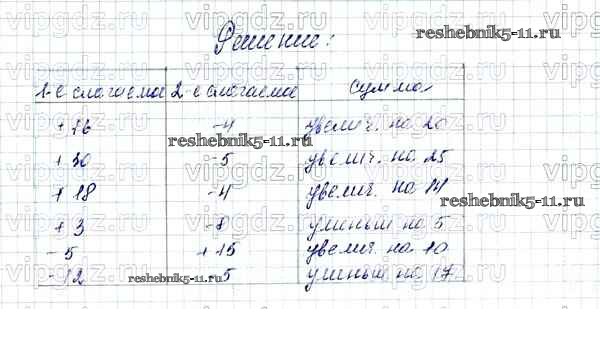 Решение:
reshebnik5-11.ru
1-е слагаемое 2-е слагаемое сумма
+ 16 -4 увелич. на 20
reshebnik5-11.ru
+ 30 -5 увелич. на 25
+ 18 -4 увелич. на 14
reshebnik5-11.ru
+ 3 -8 уменьш на 5
-5 + 15 увелич. на 10
-12 -5 уменьш на 17
reshebnik5-11.ru